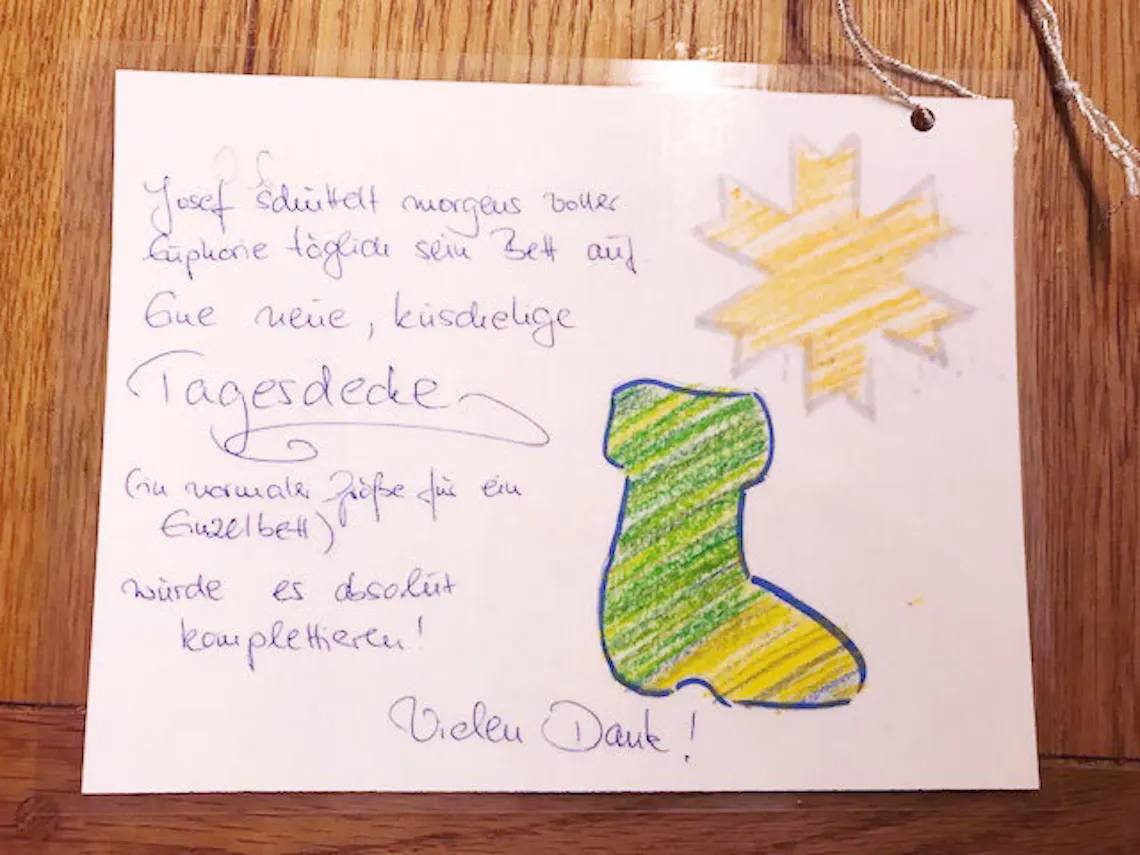 Josef schüttelt morgens voller
Euphorie täglich sein Bett auf
Eine neue, kuschelige
Tagesdecke
(in normaler Größe für ein
Einzelbett)
würde es absolut
komplettieren!
Vielen Dank!